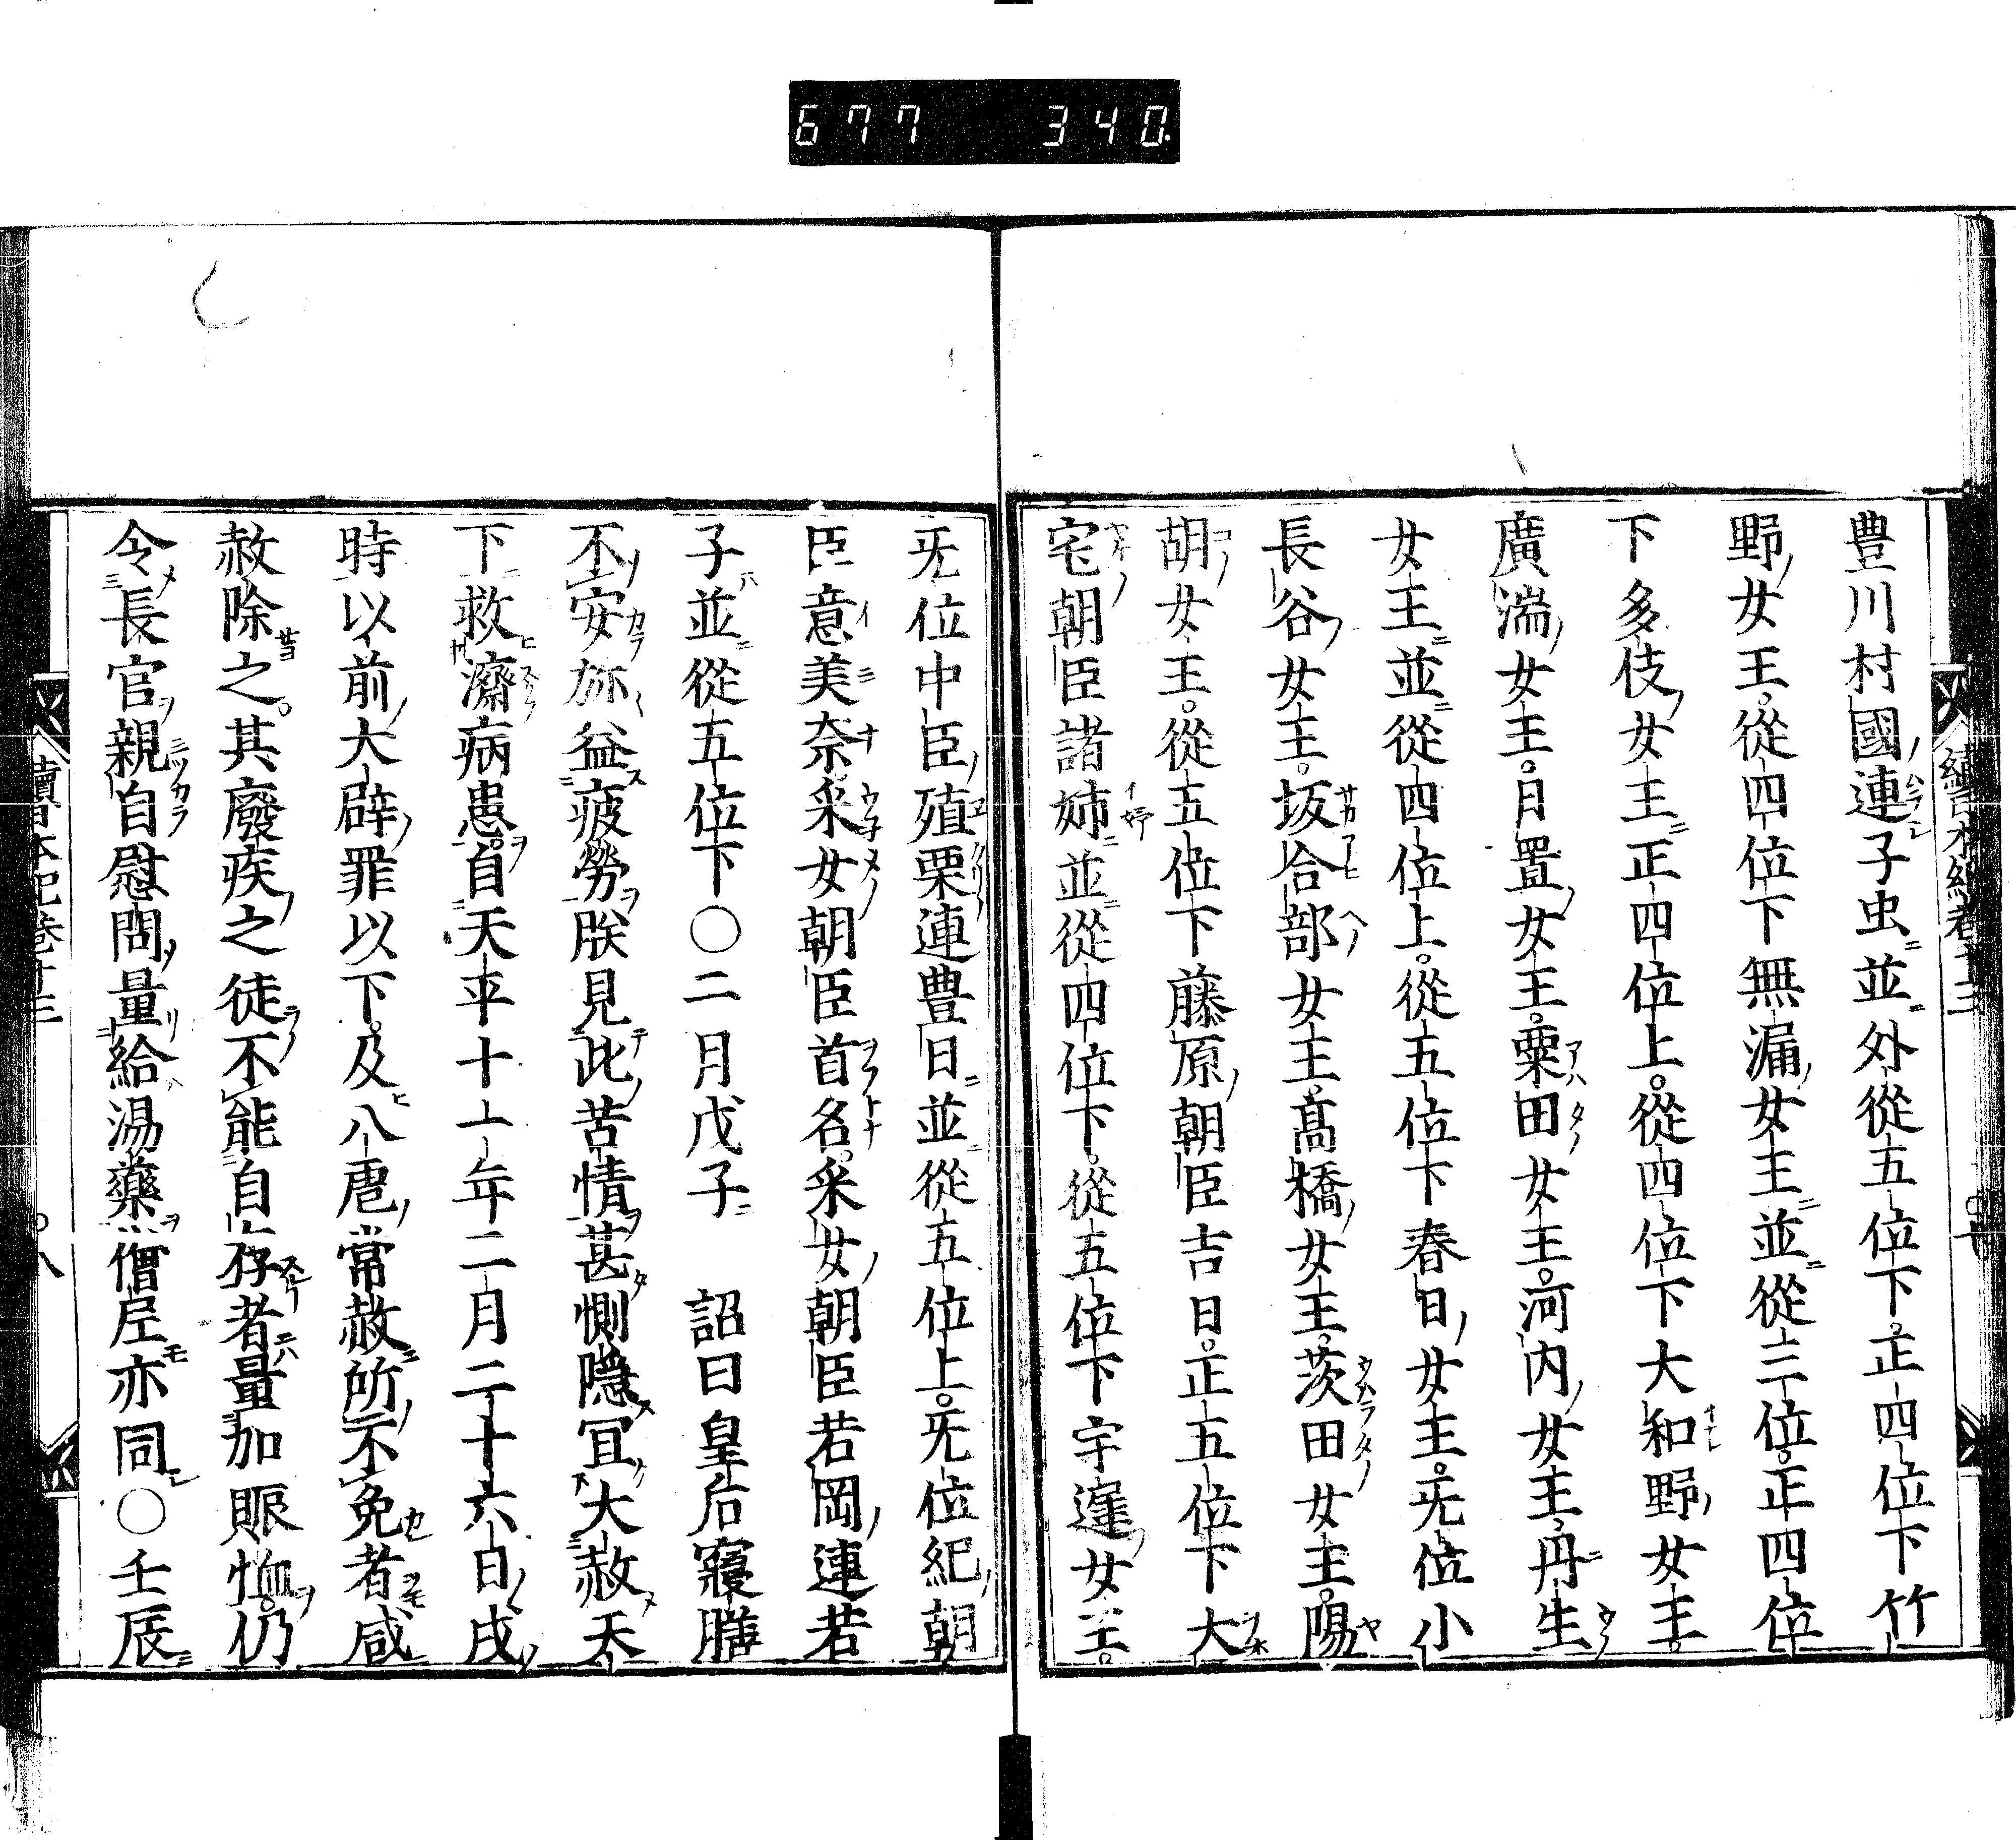 677 340
豊川村國連子虫並外從五位下。正四位下竹
野女王。從四位下無漏女王並從三位。正四位
下多伎女王正四位上。從四位下大和野女王。
廣湍女王。月置女王。粟田女王。河内女王丹生
女王並從四位上。從五位下春日女王。旡位小
長谷女王。坂合部女王高橋女王。茨田女王。陽
胡女王。從五位下藤原朝臣吉日。正五位下大
宅朝臣諸姉並從四位下。從五位下宇遲女王。
旡位中臣殖栗連豊日並從五位上。旡位紀朝
臣意美奈。采女朝臣首名。采女朝臣若岡連若
子並從五位下〇二月戊子 詔曰皇后寢膳
不安旀益疲勞朕見此苦情甚惻隱冝大赦天
下救濟病患。自天平十一年二月二十六日戌
時以前大辟罪以下。及八虐常赦所不免者咸
赦除之。其癈疾之徒不能自存者量加賑恤。仍
令長官親自慰問量給湯藥僧尼亦同〇壬辰
續日本紀卷十三 〇七
續日本紀卷十三 〇八